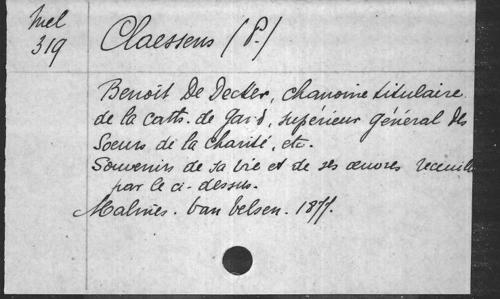 Mel
319
Claessens (P.)
Benoit De Decker, chanoine titulaire
de la cath. de Gand, supérieur général des
Soeurs de la Charité, etc.
Souvenirs de sa vie et de ses œuvres recueill
par le ci-dessus.
Malines. Van Velsen. 1877.